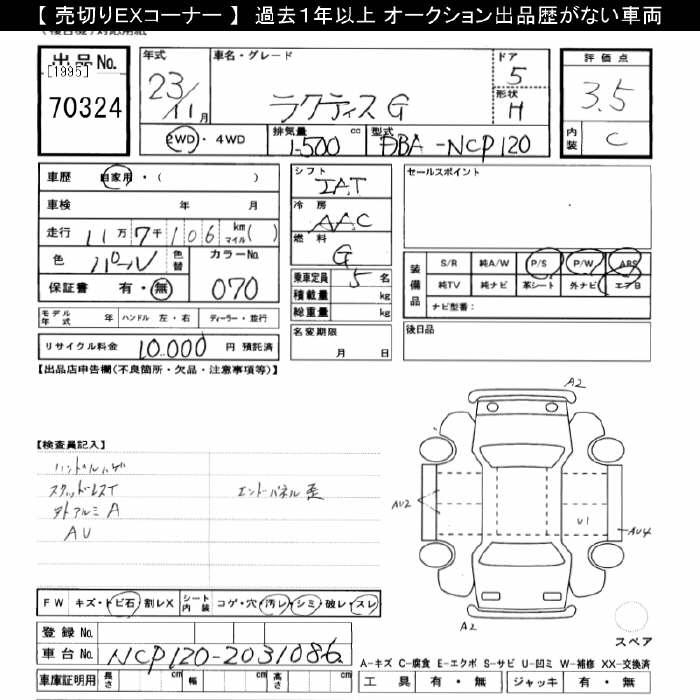 【 売切りEXコーナー 】 過去１年以上 オークション出品歴がない車両
出品No.
[1995]
70324
年式
23/11月
車名・グレード
ラクティスG
ドア
5
形状
H
評価点
3.5
内装
C
2WD・4WD
排気量
1-500 cc
型式
DBA-NCP120
車歴 自家用・( )
車検 年 月
走行 11万7千106 km マイル( )
色 パール 色替
カラーNo. 070
保証書 有・無
モデル年式 年 ハンドル 左・右 ディーラー・並行
リサイクル料金 10.000 円 預託済
シフト
IAT
冷房
AAC
燃料
G
乗車定員 5 名
積載量 kg
総重量 kg
名変期限
月 日
セールスポイント
装備品
S/R 純A/W P/S P/W ABS
純TV 純ナビ 革シート 外ナビ エアB
ナビ型番：
後日品
【出品店申告欄(不良箇所・欠品・注意事項等)】
【検査員記入】
ハンドルハゲ
スタッドレスT
外アルミA
AU
エンドパネル歪
A2
AU2
U1
AU4
A2
スペア
FW キズ・トビ石・割レX
シート内装 コゲ・穴・汚レ・シミ・破レ・スレ
登録No.
車台No. NCP120-2031086
車庫証明用 長さ cm 幅 cm 高さ cm
A-キズ C-腐食 E-エクボ S-サビ U-凹ミ W-補修 XX-交換済
工具 有・無 ジャッキ 有・無